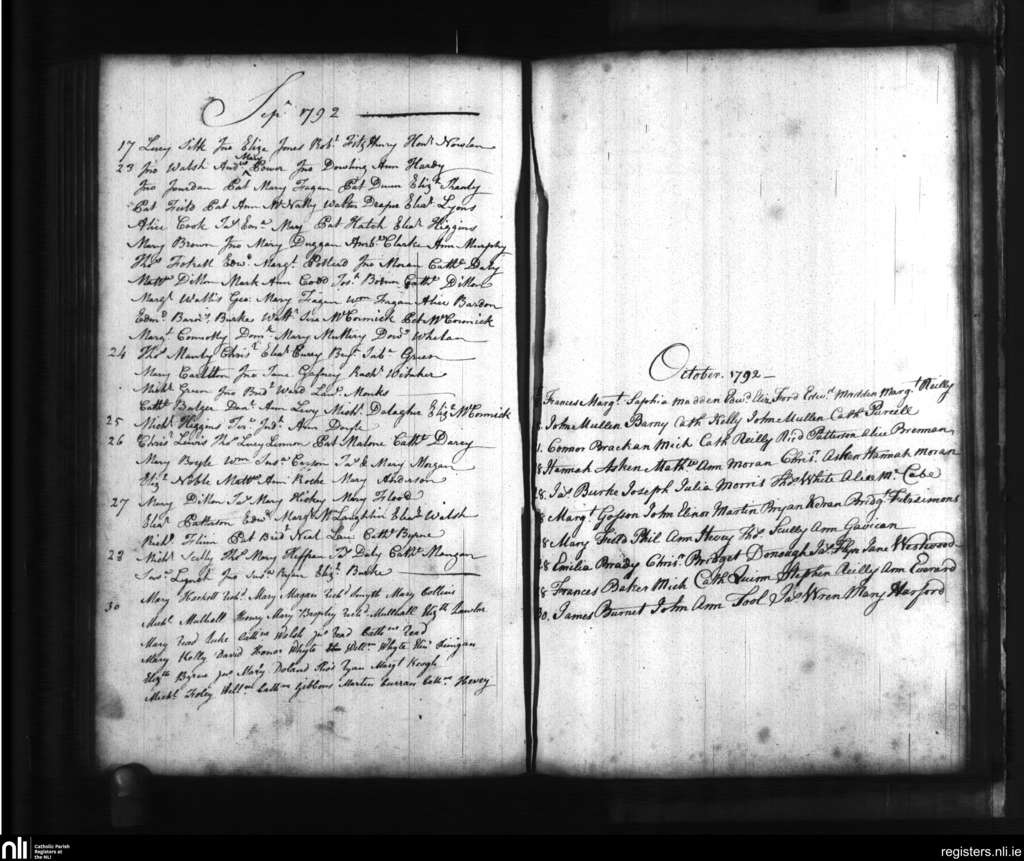 Sepr 1792
17 Lucy Silk Jno Eliza Jones Robt FitzHenry Honr Nowlan
23 Jno Walsh Andw Mary Bower Jno Dowling Ann Hardy
Jno Jourdan Pat Mary Fagan Pat Dunn Elizth
Pat Field Pat Ann McNally Walter Draper Elear Lyons
Alice Cook Jas Mary Pat Hatch Eleanr Higgins
Mary Brown Jno Mary Duggan Ambse Clarke Ann Murphy
Thos Edwd Margt Pollerd Jno Moran Cathe Daly
Mattw Dillon Mark Ann Codd Josh Cathe Dillon
Margt Wallis Geo: Mary Fagan Wm Fagan Alice Bardon
Edmd Burke McCormick Pat McCormick
Margt Connolly Domk Mary Mullery Whelan
24 Thos Christr Eleanr Curey Green
Mary Carleton Jno Jane Gafney
Michl Green Jno Bridt Ward Lawe Monks
Cathe Bulger Danl Ann Levy Michl Elizth McCormick
25 Michl Higgins Ann Doyle
26 Christr Lewis Thos Lucy Lennon Pat Malone Cathe Darcy
Mary Boyle Wm Susna Casson Jas & Mary Morgan
Noble Mattw Ann Roche Mary Anderson
27 Mary Dillon Jas Mary Hickey Mary Flood
Eleanr Patterson Edwd Margt McLaughlin Eleanr Walsh
Richd Pat Bridt Neal Law Cathe Byrne
28 Michl Scally Thos Mary Cathe Mangan
Susna Lynch Jno Susna Ryan Elizth Burke
Mary Hackett Mary Magan Smyth Mary Collins
30 Michl Mulhall Henry Mary Brophy Mulhall Elizth Lawler
Mary Read Luke Cathne Walsh Read Cathne Read
Mary Kelly David Honor Whyte Willm Whyte Finigan
Elizth Byrne Jno Mary Doland Thos Ryan Margt Keogh
Michl Foley Willm Cathne Gibbons Martin Curran Cathne Hovey
October. 1792
Frances Margt Sophia Madden Edwd Ford Edwd Madden Margt Reilly
John Mullen Barny Cath Kelly John Mullen Cath Purcill
Connor Brackan Mich Cath Reilly Richd Patterson Alice Brennan
Hannah Asken Mathw Ann Moran Chrisr Asken Hannah Moran
28. Jas Burke Joseph Julia Morris Thos White Alice McCabe
Margt Gosson John Elnor Martin Bryan Kevan Bridgt Fitzsimons
Mary Field Phil Ann Hevey Thos Scully Ann Gavican
28 Emilia Brady Chrisr Bridget Donough Jas Flyn Jane Westwood
Frances Baker Mich Cath Quinn Stephen Reilly Ann Everard
30. James Burnet John Ann Tool Jas Wren Mary Harford
nli
Catholic Parish
Registers at
the NLI
registers.nli.ie